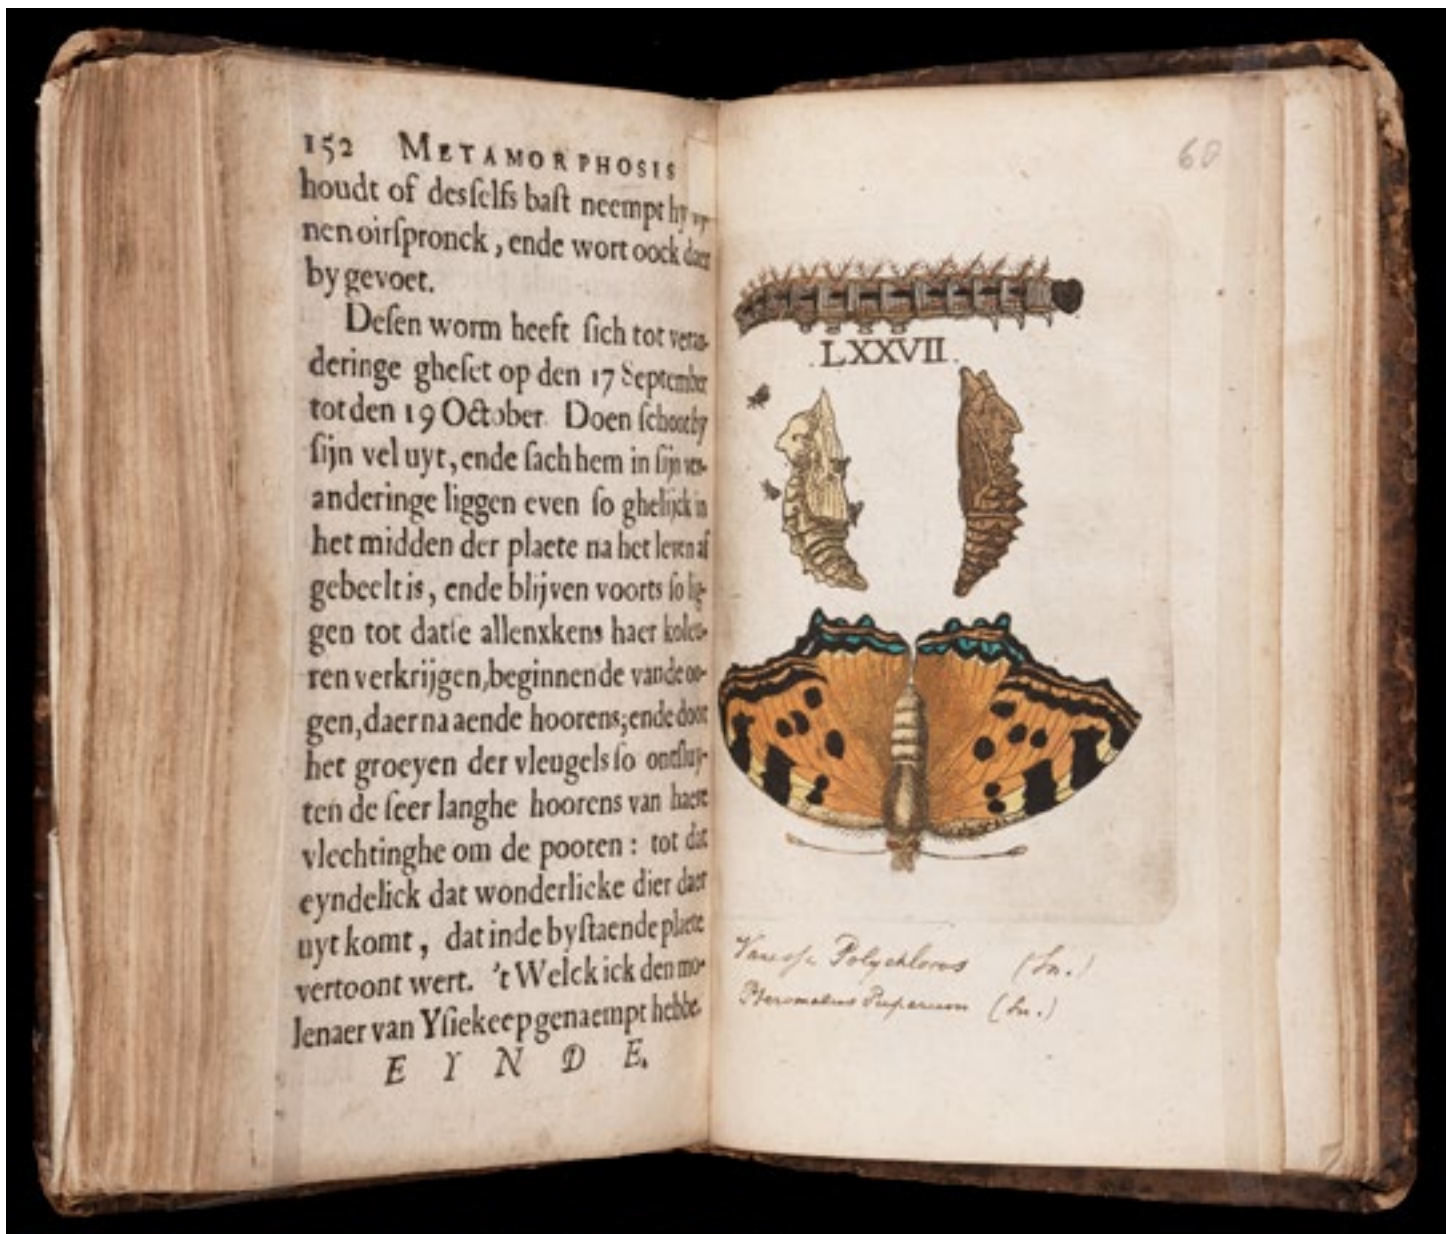 152 METAMORPHOSIS
houdt of desſelfs baſt neempt hy
nen oirſpronck, ende wort oock daer
by gevoet.
Deſen worm heeft ſich tot veran-
deringe gheſet op den 17 September
tot den 19 October. Doen ſchoot hy
ſijn vel uyt, ende ſach hem in ſijn ver-
anderinge liggen even ſo ghelijck in
het midden der plaete na het leven af
gebeelt is, ende blijven voorts ſo lig-
gen tot datſe allenxkens haer koleu-
ren verkrijgen, beginnende vande oo-
gen, daer na aende hoorens; ende door
het groeyen der vleugels ſo ontſluy-
ten de ſeer langhe hoorens van haere
vlechtinghe om de pooten: tot dat
eyndelick dat wonderlicke dier daer
uyt komt, dat inde byſtaende plaete
vertoont wert. 't Welck ick den mo-
lenaer van Yſiekeep genaempt hebbe.
EYNDE.
60
.LXXVII.
Vanessa Polychloros (Ln.)
Pteromalus Puparum (Ln.)